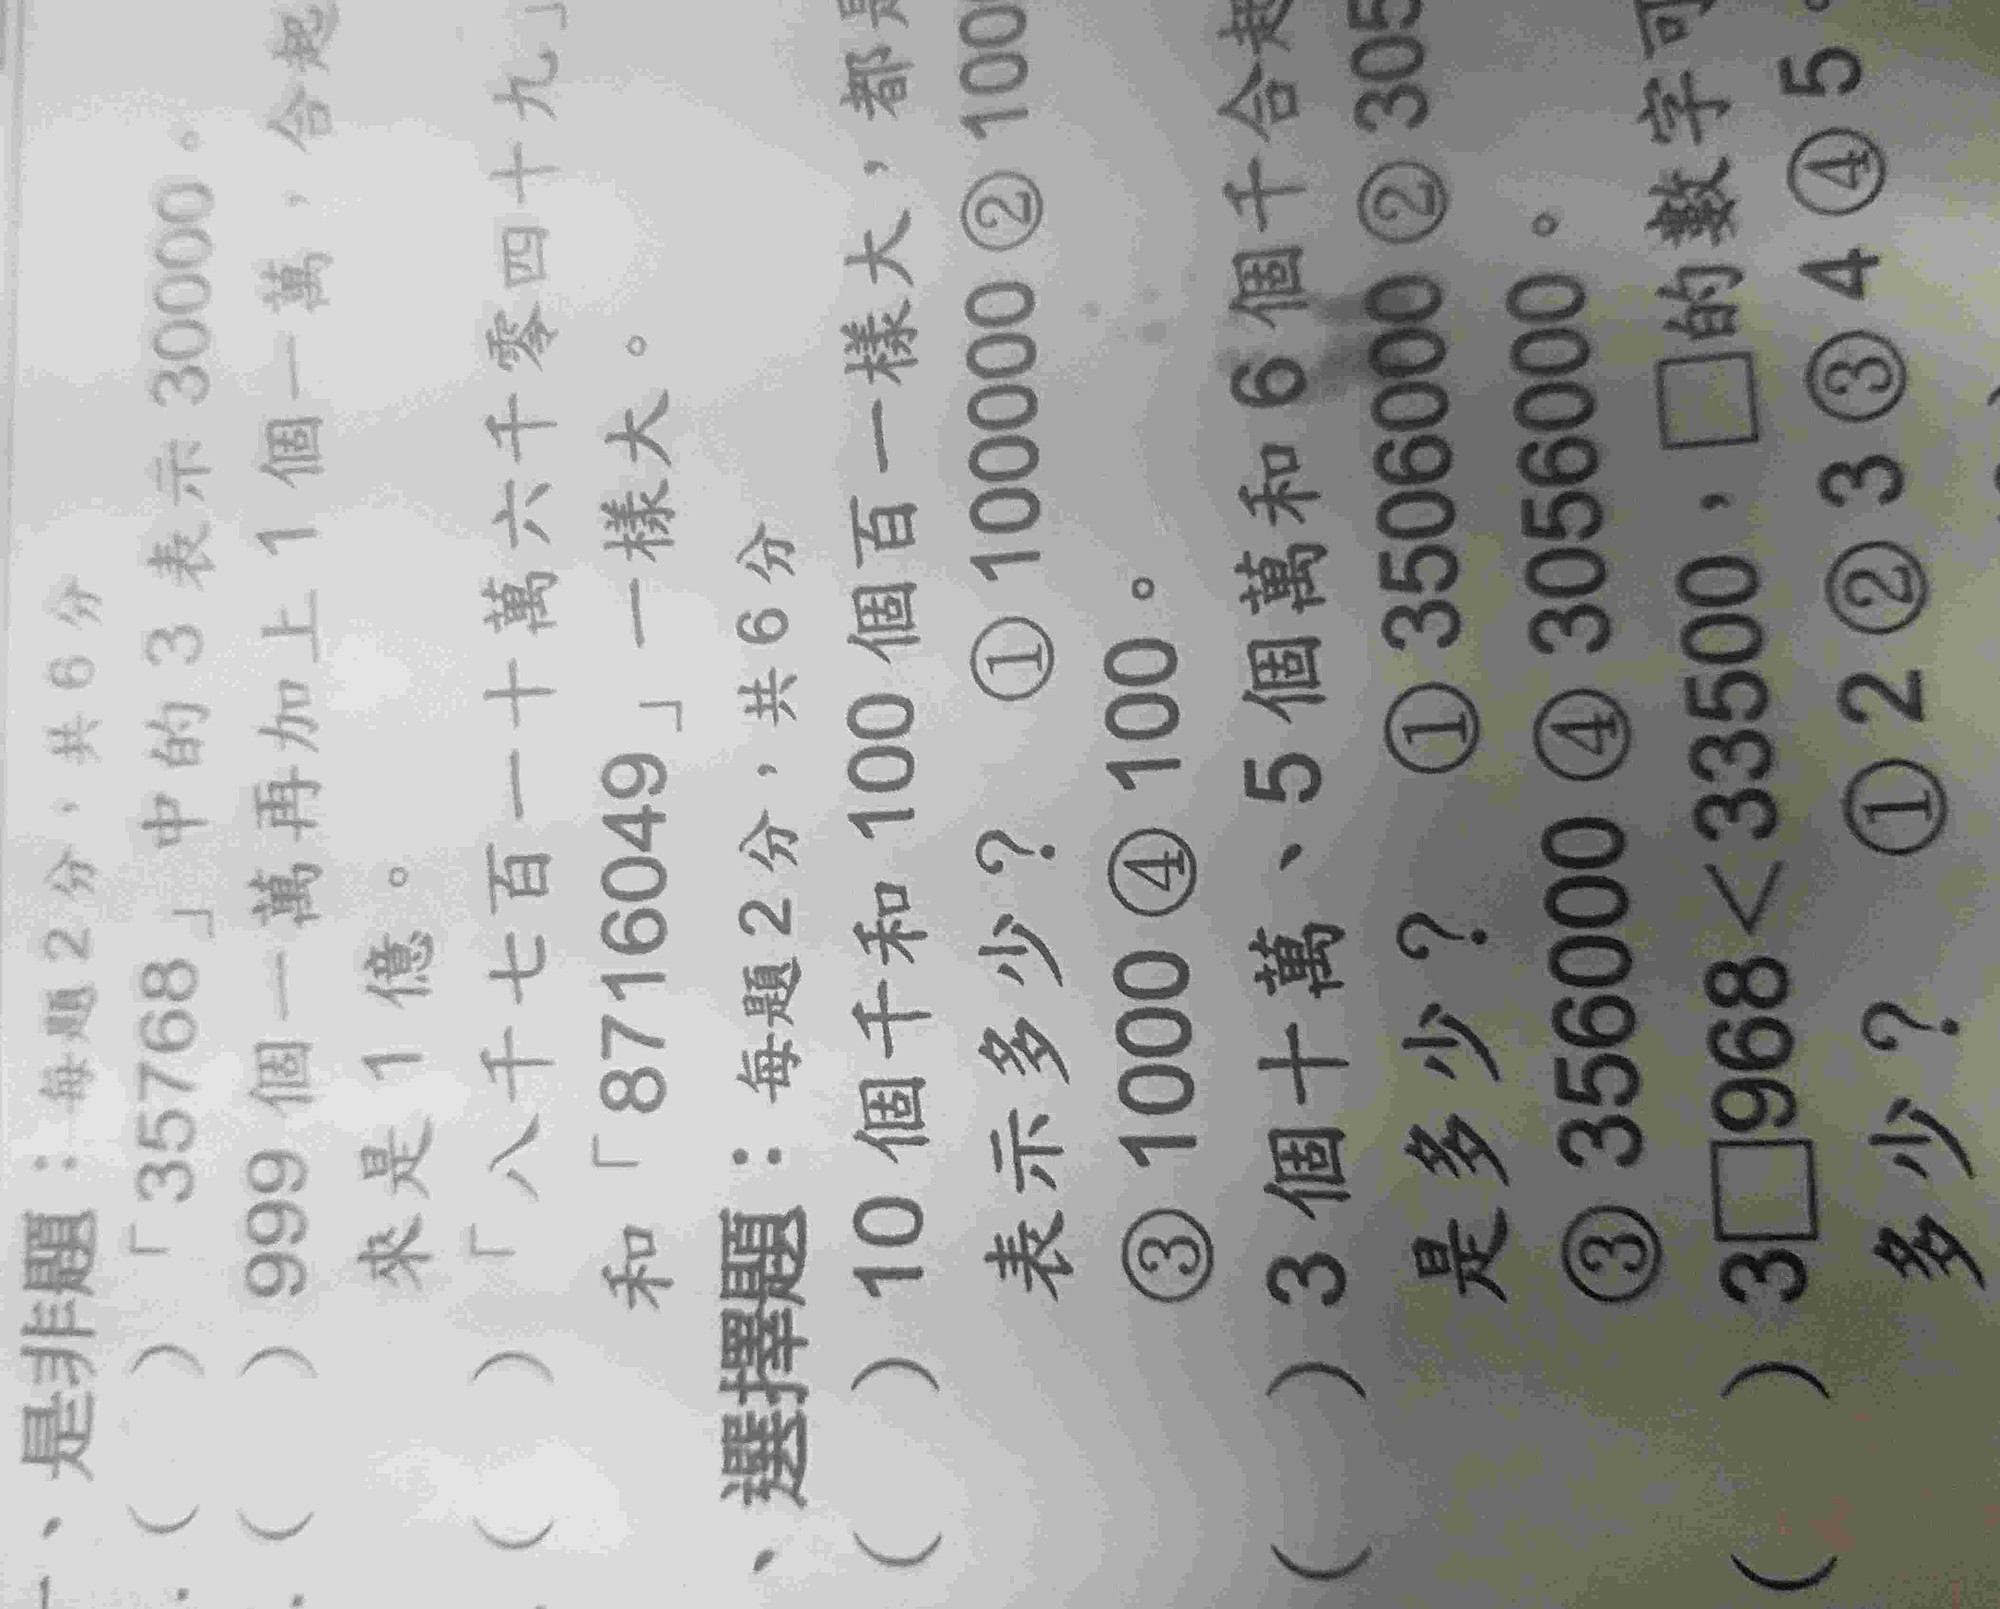 一、是非題：每題2分，共6分
. (　) 「35768」中的3表示30000。
. (　) 999個一萬再加上1個一萬，合起
來是1億。
. (　) 「八千七百一十萬六千零四十九」
和「8716049」一樣大。
、選擇題：每題2分，共6分
(　) 10個千和100個百一樣大，都是
表示多少？ ① 100000 ② 100
③ 1000 ④ 100。
(　) 3個十萬、5個萬和6個千合起
是多少？ ① 3506000 ② 305
③ 356000 ④ 3056000。
(　) 3□968＜33500，□的數字可
多少？ ① 2 ② 3 ③ 4 ④ 5。